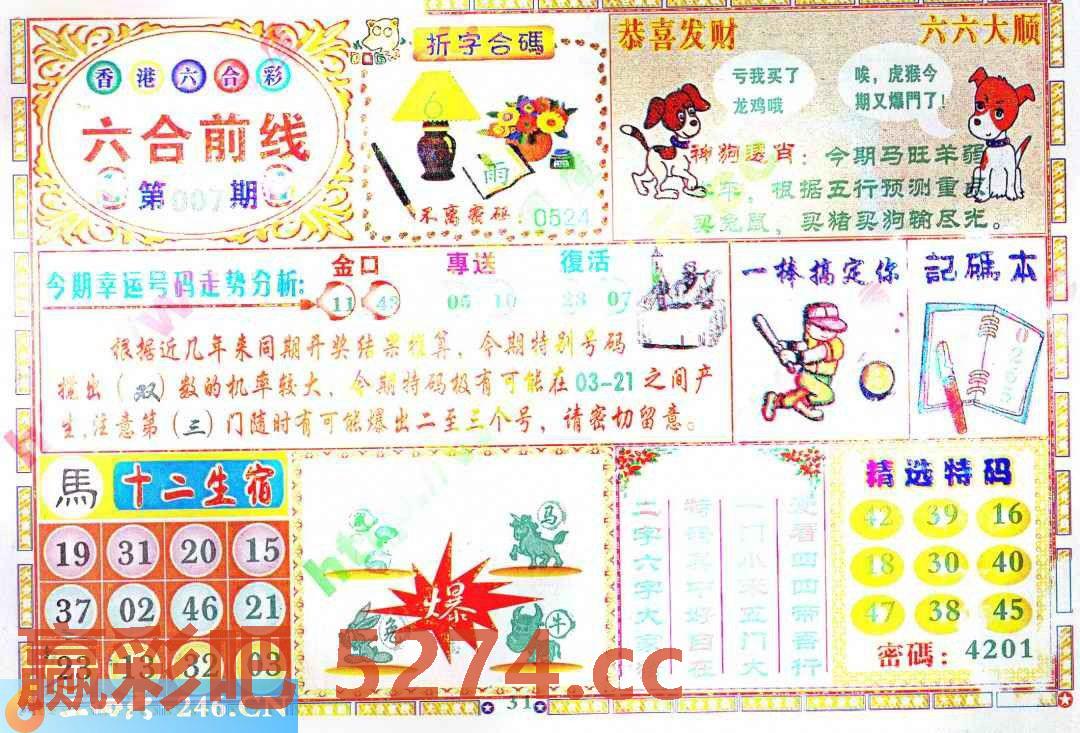 香港六合彩
六合前线
第007期
折字合碼
6
雨
不离密码:0524
恭喜发财
六六大顺
亏我买了
龙鸡哦
唉，虎猴今
期又爆門了!
神狗透肖：今期马旺羊弱
根据五行预测重点
买兔鼠，买猪买狗输尽光。
今期幸运号码走势分析:
金口
11 43
專送
05 10
復活
23 07
根据近几年来同期开奖结果推算，今期特别号码
搅出（双）数的机率较大，今期特码极有可能在03-21之间产
生,注意第（三）门随时有可能爆出二至三个号，请密切留意。
一棒搞定你
記碼本
0265
馬
十二生宿
19 31 20 15
37 02 46 21
23 13 32 03
鼠
马
爆
兔
牛
二字六字大家
一门小来五门大
精选特码
42 39 16
18 30 40
47 38 45
密碼:4201
赢彩吧 5274.cc
246.CN
31